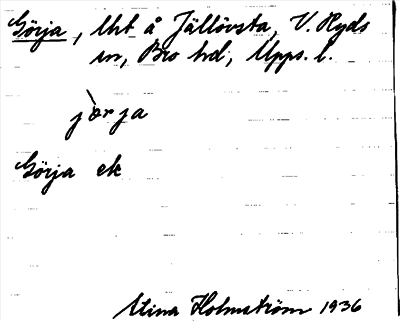 Görja, lht å Jällövsta, V. Ryds
sn, Bro hd, Upps. l.
jö̀rja
Görja ek
Stina Holmström 1936